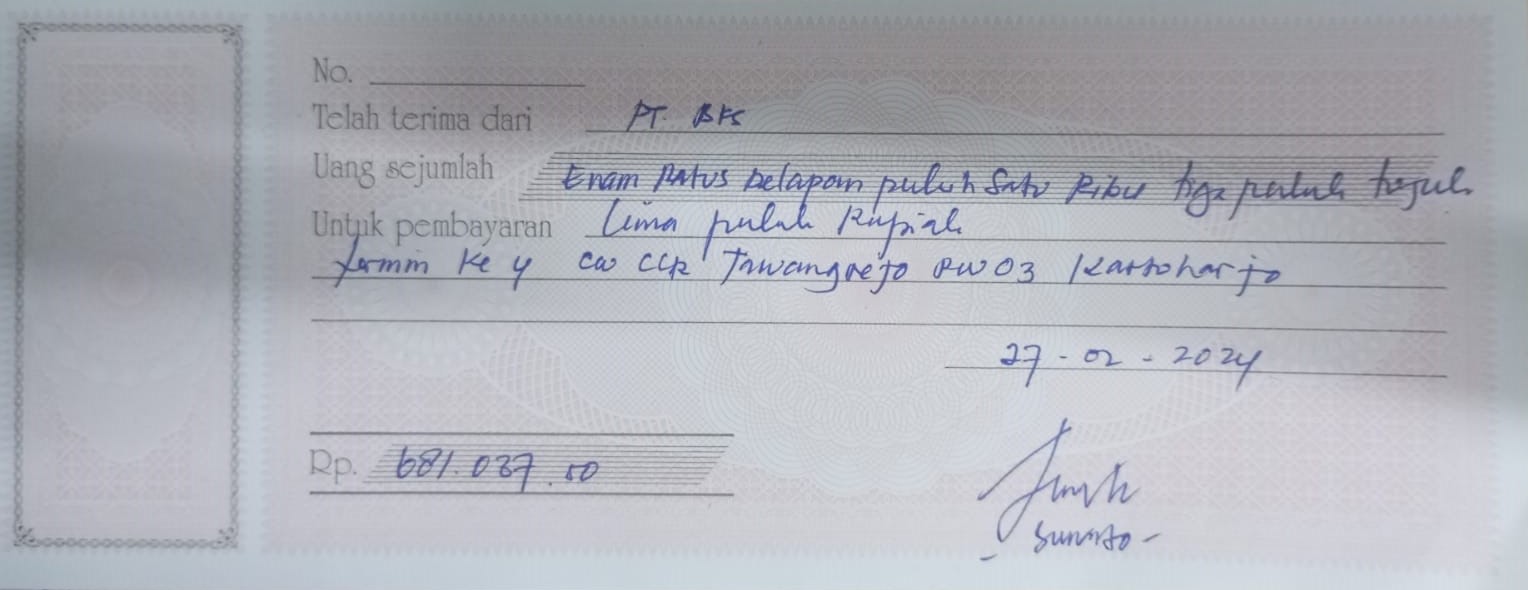 No.
Telah terima dari PT. BKS
Uang sejumlah Enam Ratus Delapan puluh Satu Ribu tiga puluh tujuh
Untuk pembayaran Lima puluh Rupiah
termin Ke 4 CW CCR Tawangrejo RW 03 Kartoharjo
27 - 02 - 2024
Rp. 681.037.50
Sunarto -